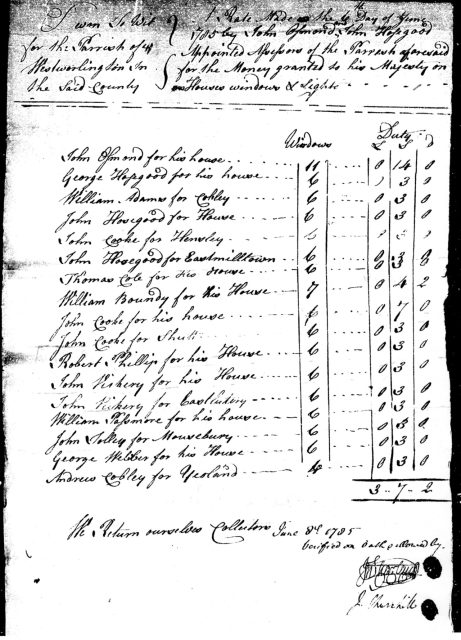 Devon To Wit A Rate Made on the 6th Day of June
1785 by John Osmond John Hosegood
for the Parrish of Appointed Assessors of the Parrish aforesaid
Westworlington In for the Money granted to his Majesty on
the Said County on Houses windows & Lights
Windows Duty
£ S D
John Osmond for his house 11 0 14 0
George Hosegood for his house 6 0 3 0
William Adams for Cobley 6 0 3 0
John Hosegood for House 6 0 3 0
John Cooke for Hensley 6 0 3 0
John Hosegood for Eastmilltown 6 0 3 0
Thomas Cole for his House 6 0 3 0
William Boundy for his House 7 0 4 2
John Cooke for his house 0 7 0
John Cooke for 6 0 3 0
Robert Phillip for his House 6 0 3 0
John Vickery for his House 6 0 3 0
John Vickery for 6 0 3 0
William Passmore for his house 6 0 3 0
John Tolley for Mousebury 6 0 3 0
George Webber for his House 6 0 3 0
Andrew Cobley for Yeoland 0 3 0
3 - 7 - 2
We Return ourselves Collectors June 8th 1785
Verified on Oath & allowed by
J. Churchill